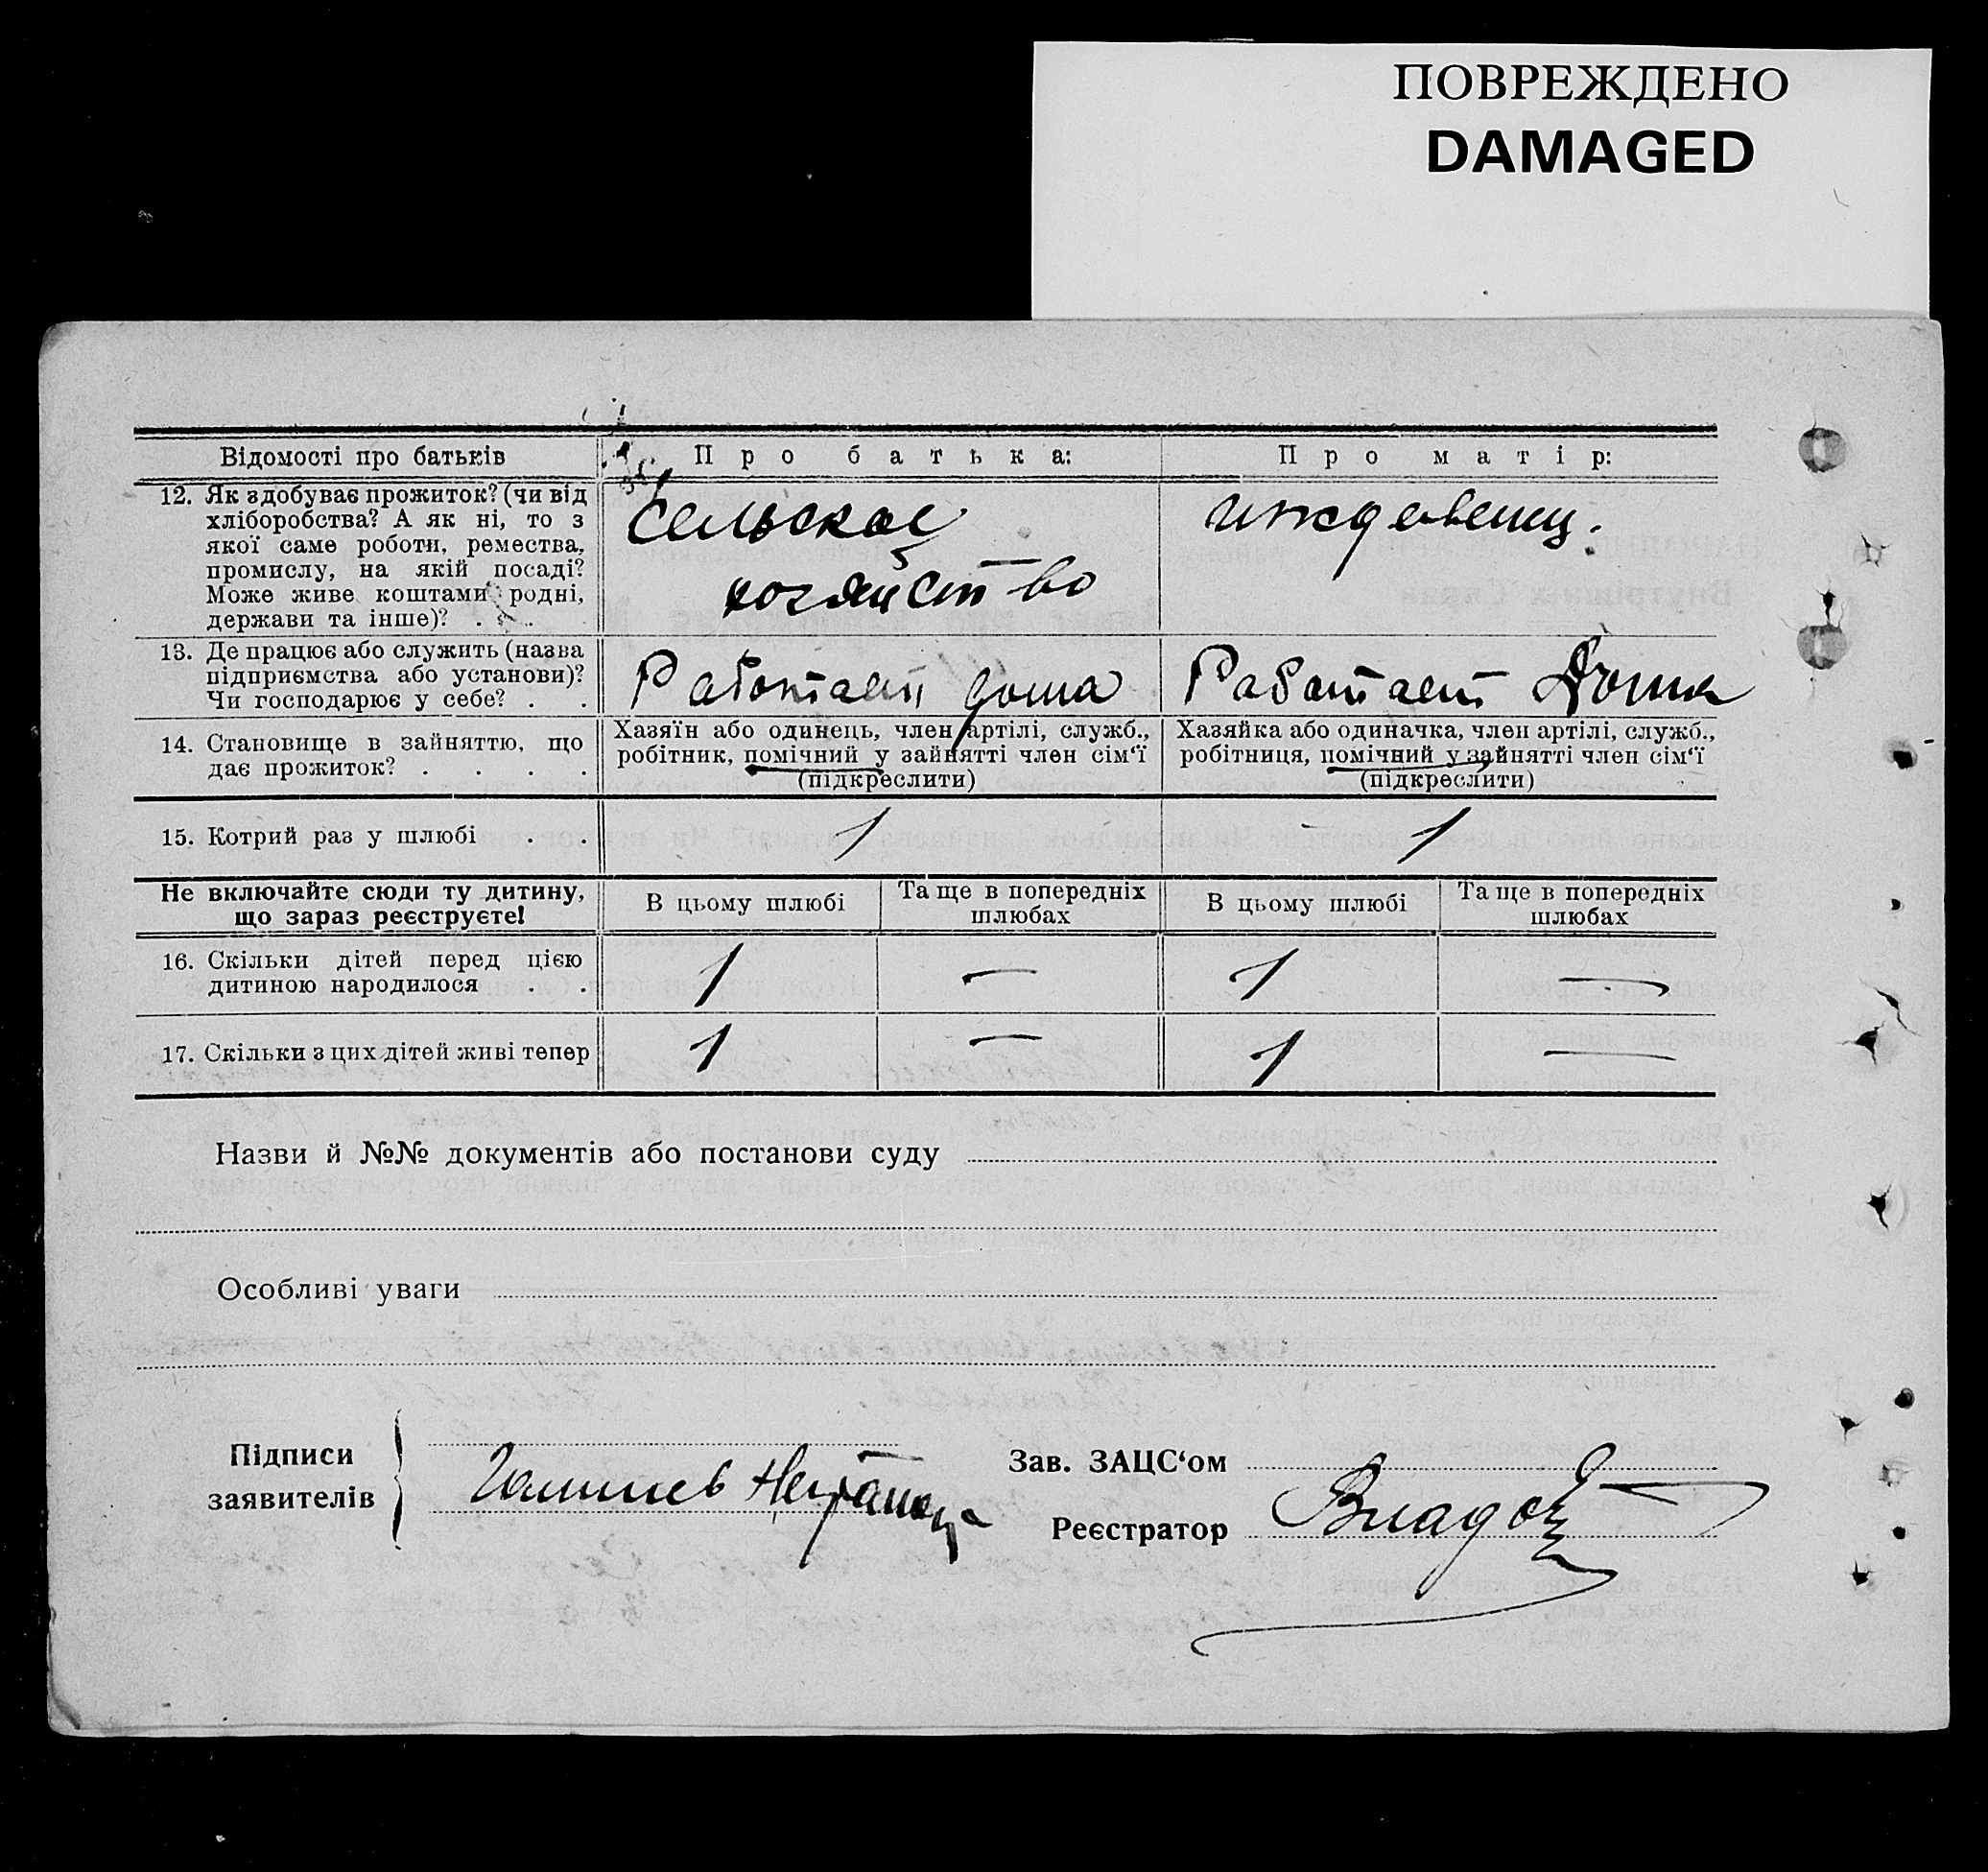 ПОВРЕЖДЕНО
DAMAGED
Відомості про батьків
Про батька:
Про матір:
12. Як здобуває прожиток? (чи від
хліборобства? А як ні, то з
якої саме роботи, ремества,
промислу, на якій посаді?
Може живе коштами родні,
держави та інше)? . . .
Сельское
хозяйство
иждевенец.
13. Де працює або служить (назва
підприємства або установи)?
Чи господарює у себе? . .
Работает дома
Работает Дома
14. Становище в зайняттю, що
дає прожиток? . . . .
Хазяїн або одинець, член артілі, служб.,
робітник, помічний у зайнятті член сім‘ї
(підкреслити)
Хазяйка або одиначка, член артілі, служб.,
робітниця, помічний у зайнятті член сім‘ї
(підкреслити)
15. Котрий раз у шлюбі . .
1
1
Не включайте сюди ту дитину,
що зараз реєструєте!
В цьому шлюбі
Та ще в попередніх
шлюбах
В цьому шлюбі
Та ще в попередніх
шлюбах
16. Скільки дітей перед цією
дитиною народилося . .
1 — 1 —
17. Скільки з цих дітей живі тепер
1 — 1 —
Назви й №№ документів або постанови суду
Особливі уваги
Підписи
заявителів
Зав. ЗАЦС‘ом
Реєстратор